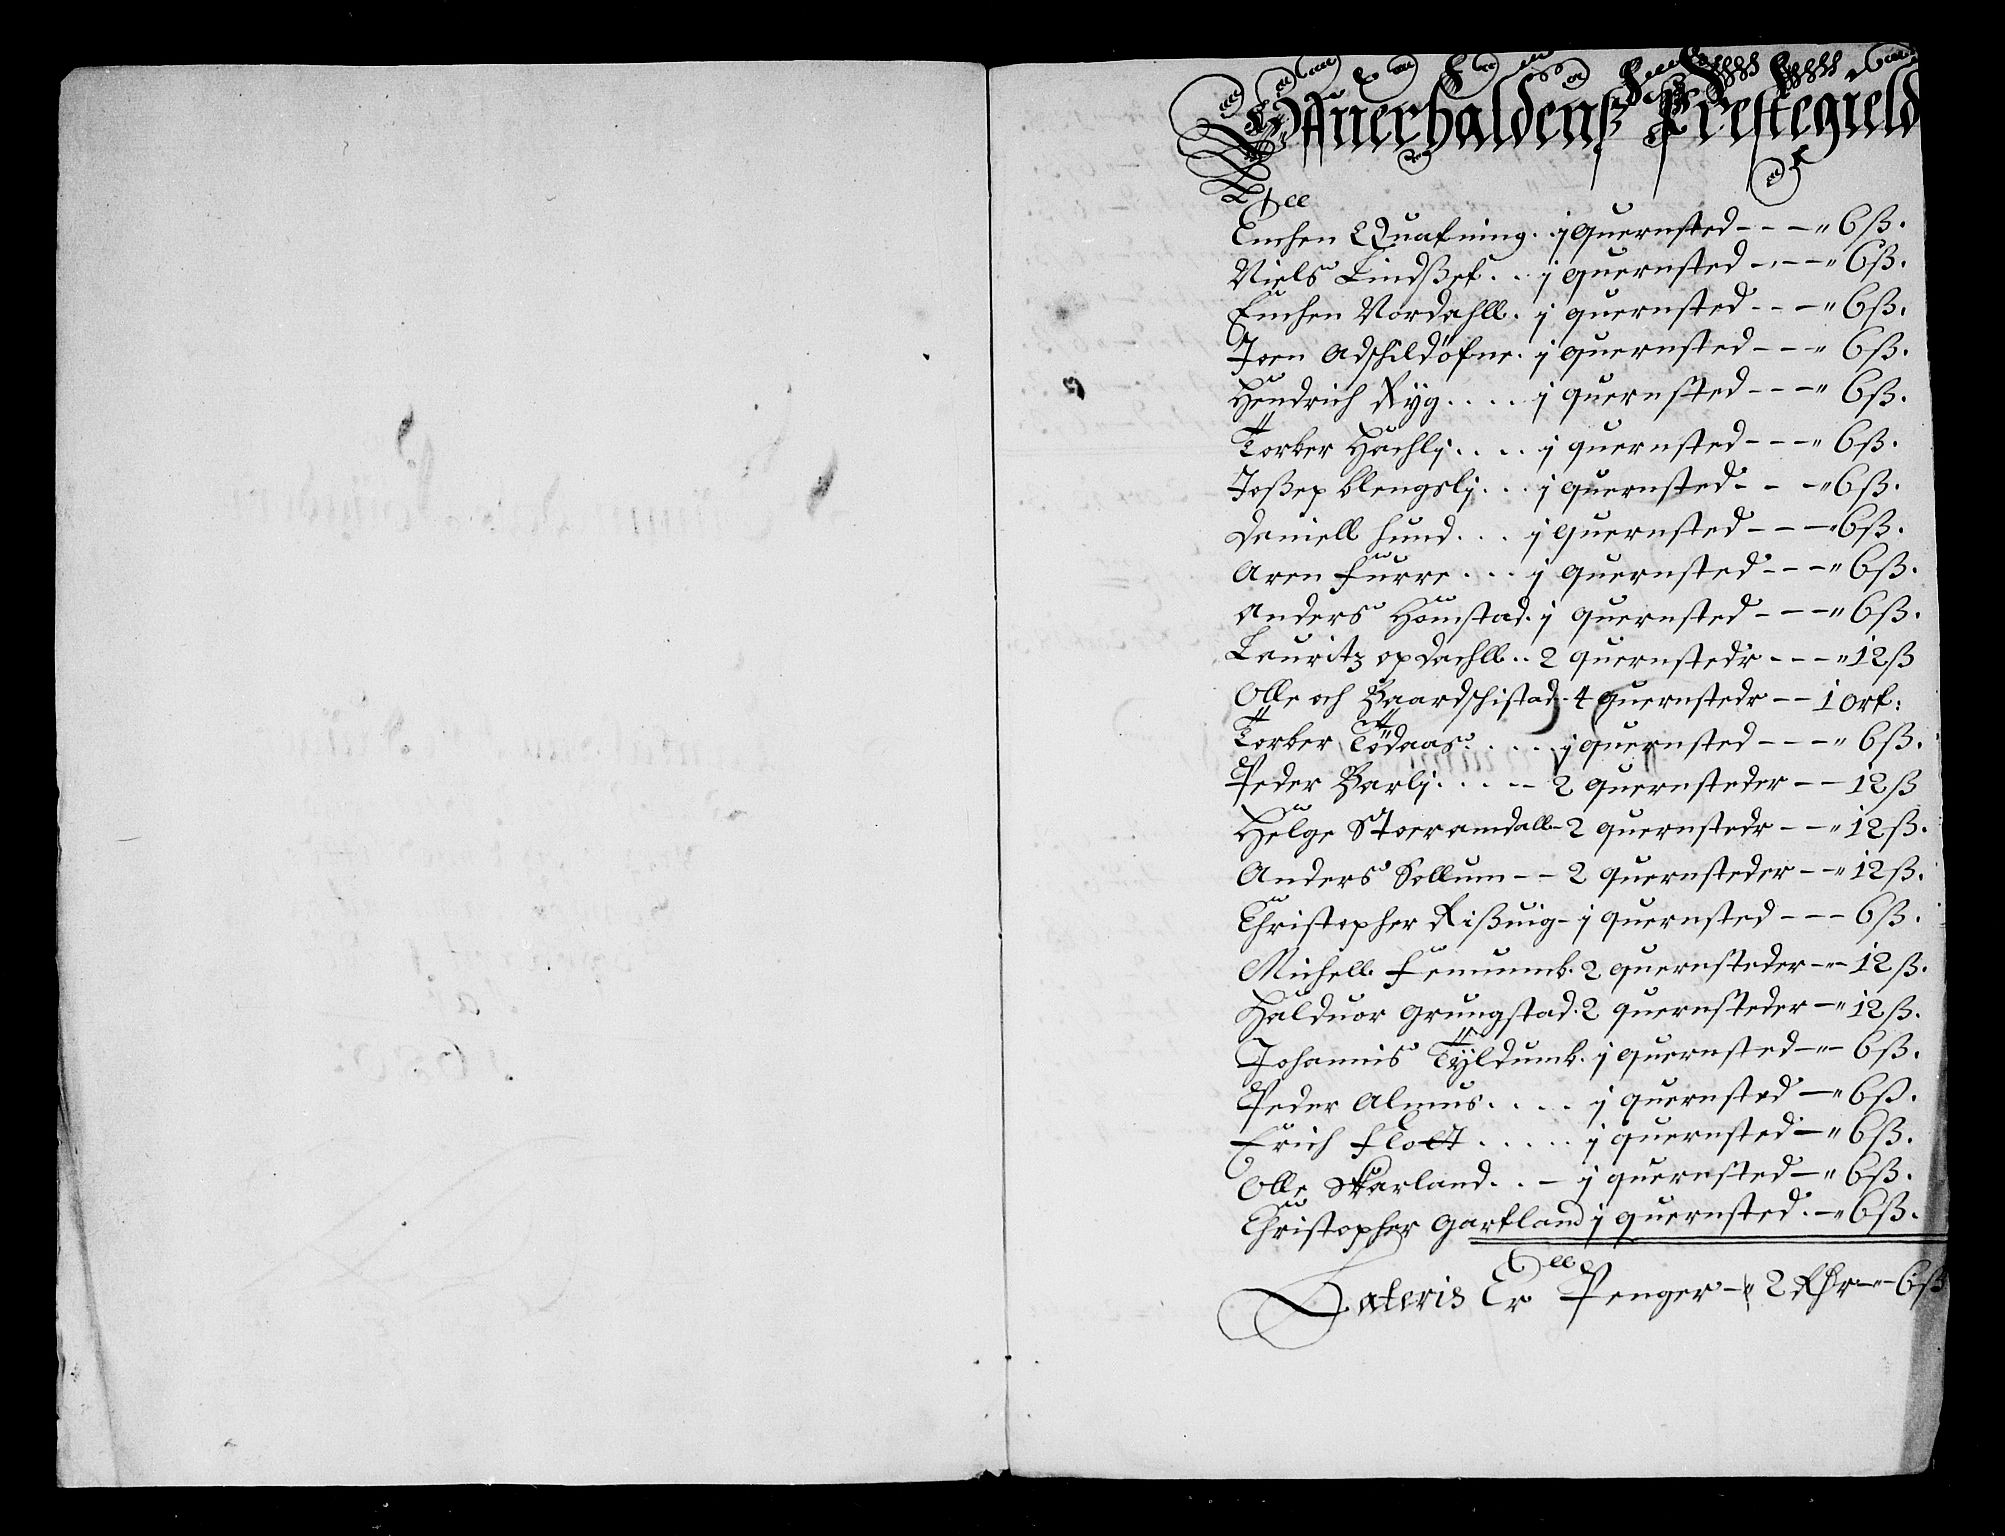 Offuerhaldens Prestegield
Emhen Quatning. j quernsted - - - " 6 ß.
Niels Lindßet. . j quernsted - - - " 6 ß.
Emhen Nordahll. j quernsted - - - " 6 ß.
Joen Adschildöfne. j quernsted - - - " 6 ß.
Hendrich Ryg . . . . j quernsted - - - " 6 ß.
Torber Hachlj . . . . j quernsted - - - " 6 ß.
Joßep blengslj . . . j quernsted - - - " 6 ß.
Daniell Hund . . . j quernsted - - - " 6 ß.
Aren Furre . . . j quernsted - - - " 6 ß.
Anders Homstad. j quernsted - - - " 6 ß.
Lauritz opdachll . . 2 quernstedr - - - " 12 ß
Olle och Baardschistad. 4 quernstedr - - 1 ort:
Torber Tödaas . . . . j quernsted - - - " 6 ß.
Peder Barlj . . . - - 2 quernsteder - - 12 ß
Helge Stoeramdall - 2 quernstedr - - " 12 ß.
Anders Sellum - - 2 quernsteder - - " 12 ß.
Christopher Rißuig - j quernsted - - - 6 ß.
Michell Femumb. 2 quernsteder - " - 12 ß.
Halduor Grungstad. 2 quernsteder - " 12 ß.
Johannis Tyldumb. j quernsted - " - 6 ß.
Peder Almus . . . . j quernsted - " 6 ß.
Erich Flott . . . . . j quernsted - " 6 ß.
Olle Skarland . . - j quernsted - " 6 ß.
Christopher Gartland j quernsted. - " 6 ß.
Lateris Er Penger - " 2 Rdr - " - 6 ß